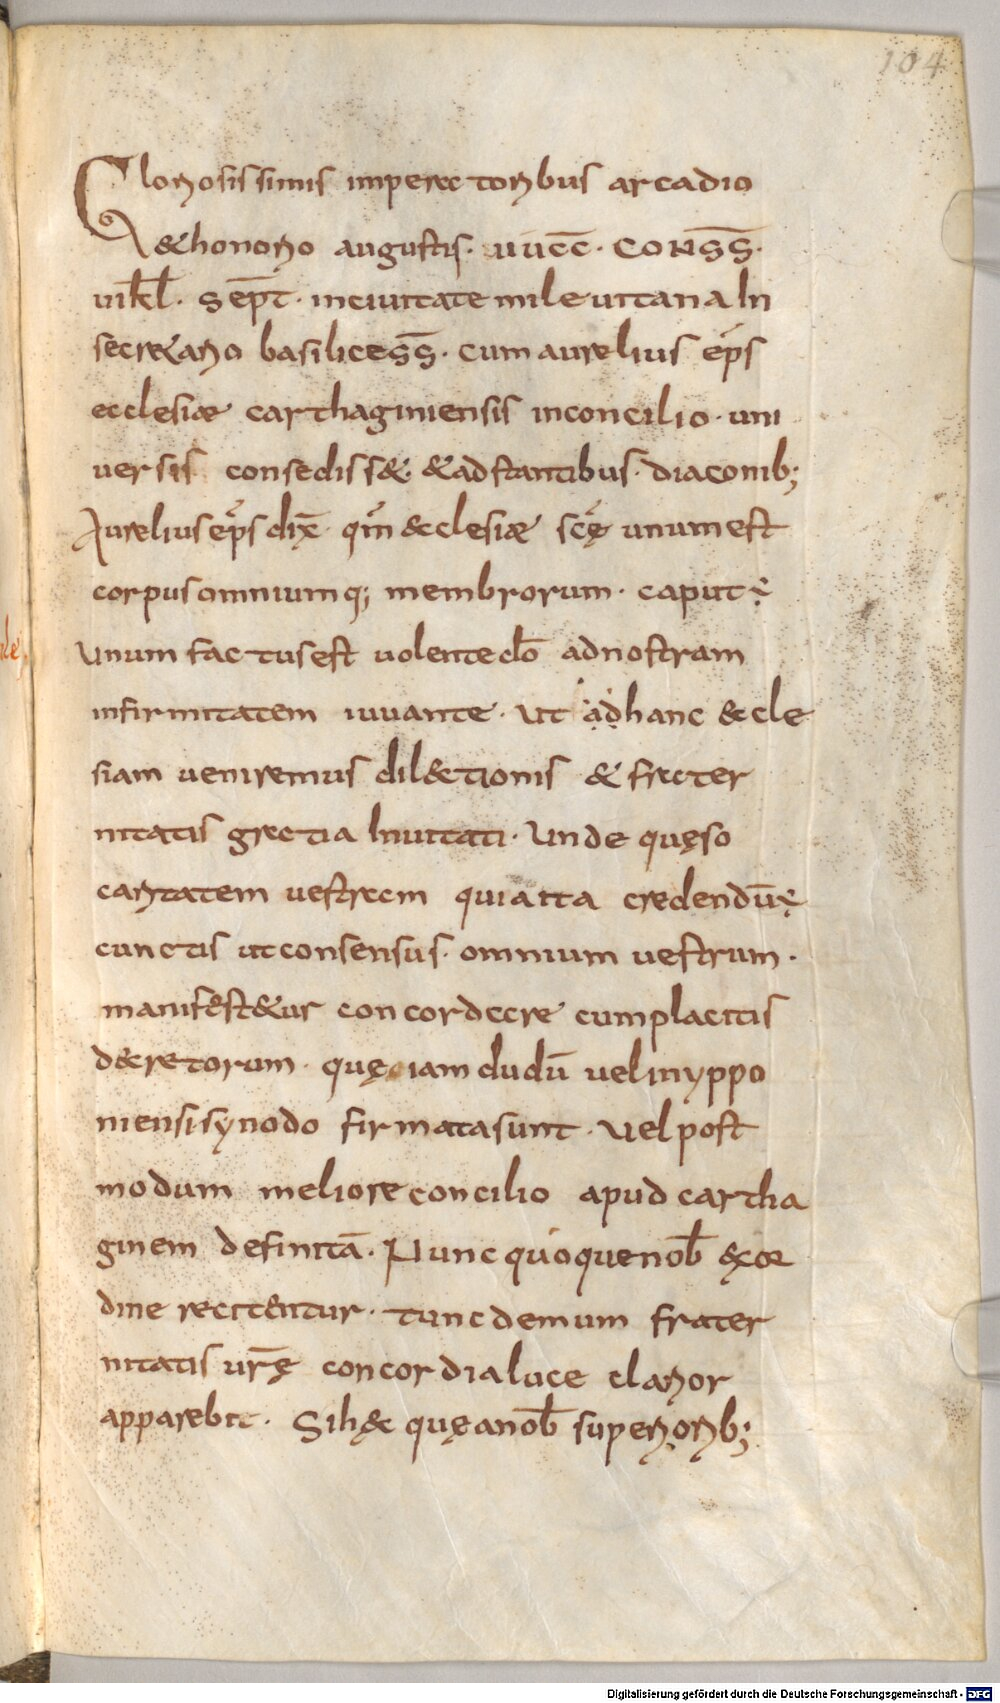 104
Gloriosissimis imperatoribus arcadio
& honorio augustis · uuc̄c̄ · CONS̄S̄ ·
uik̄l · sep̄t · inciuitate mileuitana In
secr&ario basilices̄s̄ · cum aurelius ep̄s
ecclesiæ carthaginiensis inconcilio · uni
uersis consediss& · & adstantibus · diaconib;
Aurelius ep̄s dix̄ · qm̄ &cclesiæ sc̄ę unum est
corpus omniumq; membrorum · caput ÷
Unum factus est uolente do̅ ad nostram
infirmitatem iuuante · ut ad hanc &ccle
siam ueniremus dil&tionis & frater
nitatis gratia Inuitati · Unde quęso
caritatem uestram quia ita credendū ÷
cunctis ut consensus · omnium uestrum ·
manifest&ur concordare cum placitis
d&retorum · quę iam dudū uel inyppo
niensi synodo firmata sunt · Uel post
modum meliore concilio apud cartha
ginem definitā · Nunc quoque nob̄ &x or
dine recitentur · tunc demum frater
nitatis ur̄ę concordia luce clarior
apparebit · Si hęc quę a nob̄ superiorib;
Digitalisierung gefördert durch die Deutsche Forschungsgemeinschaft - DFG